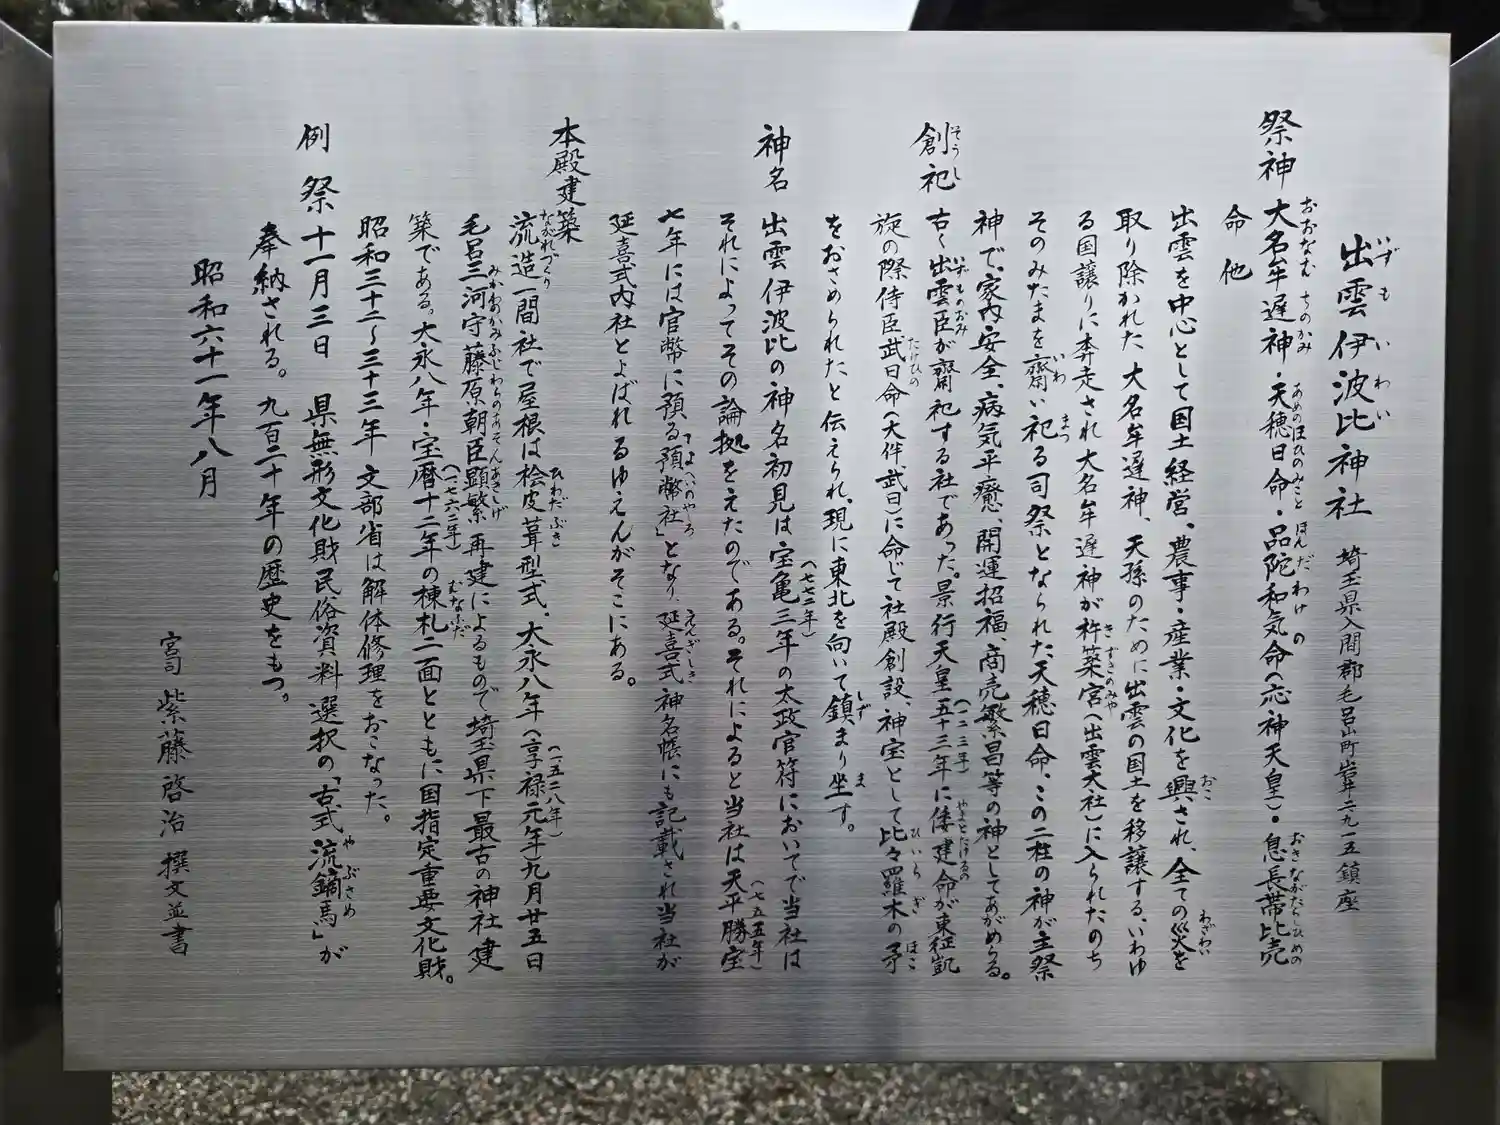 出雲伊波比神社 埼玉県入間郡毛呂山町岩井二九一五鎮座
祭神 大名牟遅神・天穂日命・品陀和気命(応神天皇)・息長帯比売
命他
出雲を中心として国土経営、農事・産業・文化を興され、全ての災を
取り除かれた大名牟遅神、天孫のために出雲の国土を移譲する、いわゆ
る国譲りに奔走され大名牟遅神が杵築宮(出雲大社)に入られたのち
そのみたまを齋い祀る司祭となられた天穂日命、この二柱の神が主祭
神で、家内安全、病気平癒、開運招福、商売繁昌等の神としてあがめらる。
創祀 古く出雲臣が齋祀する社であった。景行天皇五十三年(一二三年)に倭建命が東征凱
旋の際侍臣武日命(大伴武日)に命じて社殿創設、神宝として比々羅木の矛
をおさめられたと伝えられ、現に東北を向いて鎮まり坐す。
神名 出雲伊波比の神名初見は宝亀三年(七七二年)の太政官符においてで当社は
それによってその論拠をえたのである。それによると当社は天平勝宝
七年(七五五年)には官幣に預る「預幣社」となり、延喜式神名帳にも記載され当社が
延喜式内社とよばれるゆえんがそこにある。
本殿建築 流造一間社で屋根は桧皮葺型式。大永八年(享禄元年)(一五二八年)九月廿五日
毛呂三河守藤原朝臣顕繁再建によるもので埼玉県下最古の神社建
築である。大永八年・宝暦十二年(一七六二年)の棟札二面とともに国指定重要文化財。
昭和三十二〜三十三年文部省は解体修理をおこなった。
例祭 十一月三日 県無形文化財民俗資料選択の「古式流鏑馬」が
奉納される。九百二十年の歴史をもつ。
昭和六十一年八月
宮司 紫藤啓治 撰文並書